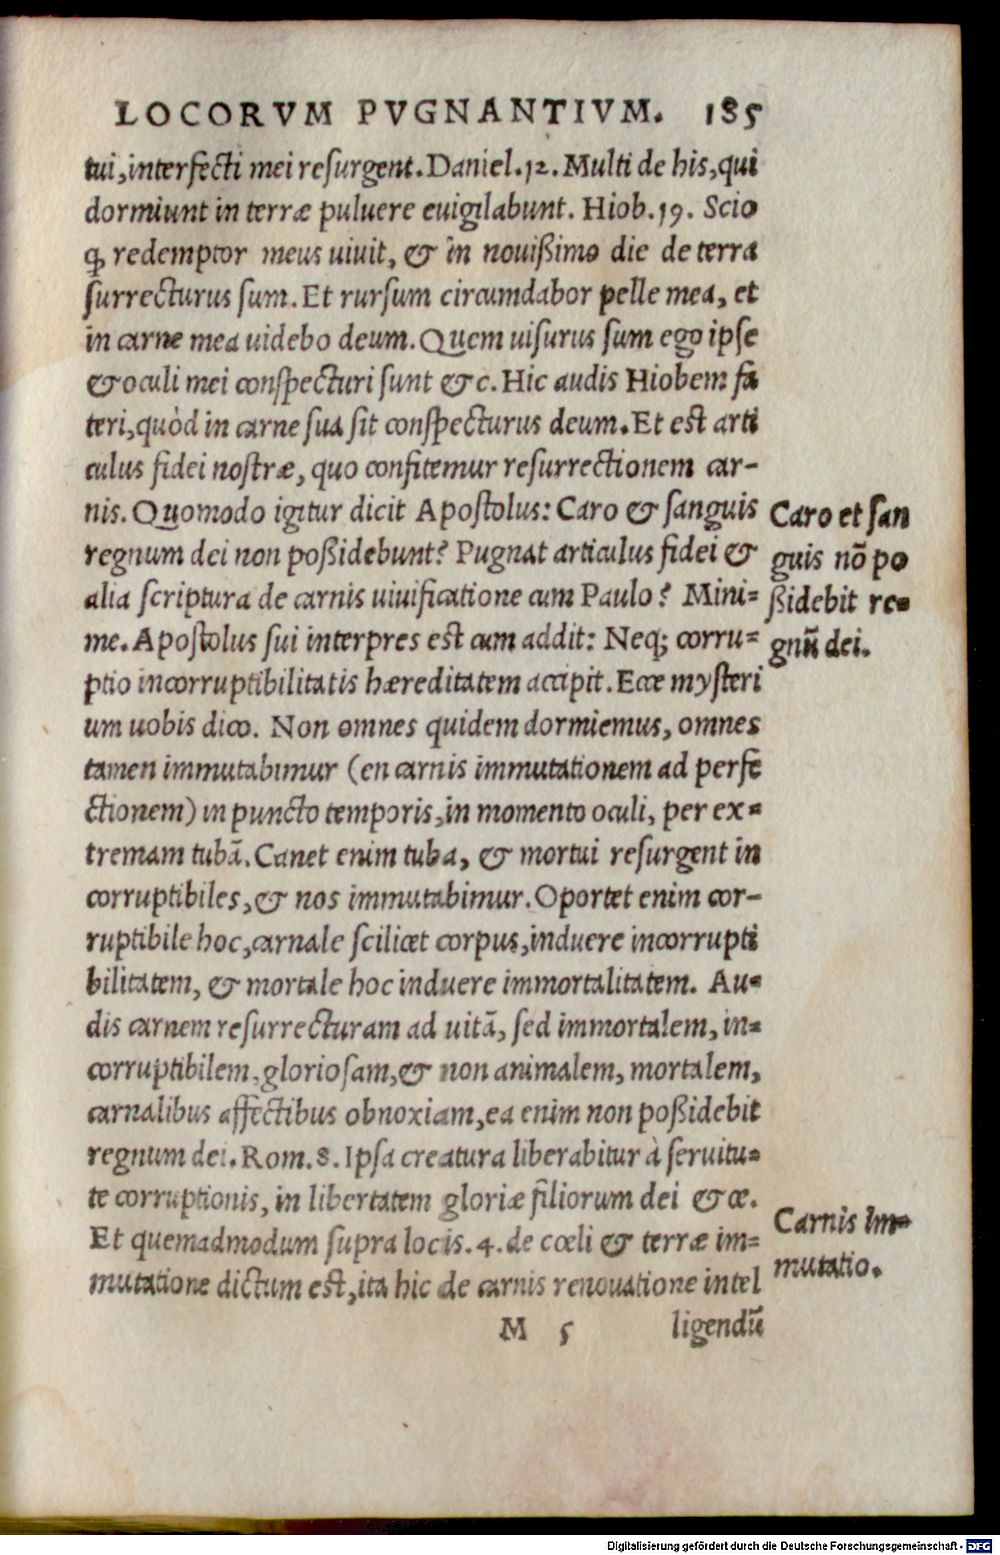 LOCORVM PVGNANTIVM. 185
tui, interfecti mei resurgent. Daniel. 12. Multi de his, qui
dormiunt in terræ puluere euigilabunt. Hiob. 19. Scio
ꝙ redemptor meus uiuit, & in nouißimo die de terra
surrecturus sum. Et rursum circumdabor pelle mea, et
in carne mea uidebo deum. Quem uisurus sum ego ipse
& oculi mei conspecturi sunt &c. Hic audis Hiobem fa
teri, quòd in carne sua sit conspecturus deum. Et est arti
culus fidei nostræ, quo confitemur resurrectionem car-
nis. Quomodo igitur dicit Apostolus: Caro & sanguis
regnum dei non poßidebunt? Pugnat articulus fidei &
alia scriptura de carnis uiuificatione cum Paulo? Mini-
me. Apostolus sui interpres est cum addit: Neq; corru-
ptio incorruptibilitatis hæreditatem accipit. Ecce mysteri
um uobis dico. Non omnes quidem dormiemus, omnes
tamen immutabimur (en carnis immutationem ad perfe
ctionem) in puncto temporis, in momento oculi, per ex-
tremam tubā. Canet enim tuba, & mortui resurgent in
corruptibiles, & nos immutabimur. Oportet enim cor-
ruptibile hoc, carnale scilicet corpus, induere incorrupti
bilitatem, & mortale hoc induere immortalitatem. Au-
dis carnem resurrecturam ad uitā, sed immortalem, in-
corruptibilem, gloriosam, & non animalem, mortalem,
carnalibus affectibus obnoxiam, ea enim non poßidebit
regnum dei. Rom. 8. Ipsa creatura liberabitur à seruitu-
te corruptionis, in libertatem gloriæ filiorum dei &c.
Et quemadmodum supra locis. 4. de cœli & terræ im-
mutatione dictum est, ita hic de carnis renouatione intel
M 5 ligendū
Caro et san
guis nō po
ßidebit re-
gnū dei.
Carnis im-
mutatio.
Digitalisierung gefördert durch die Deutsche Forschungsgemeinschaft - DFG